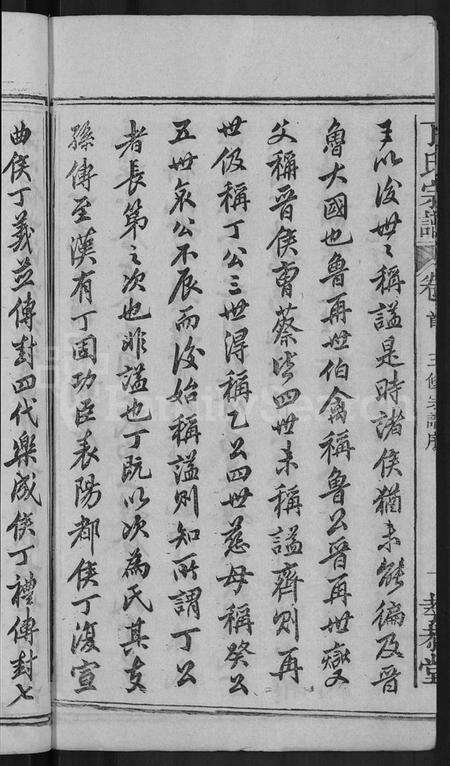 丁氏宗譜 卷首 三修宗譜序
王以後世々稱謚是時諸侯猶未能徧及晉
魯大國也魯再世伯禽稱魯公晉再世燮
父稱晉侯曹蔡皆四世未稱謚齊則再
世伋稱丁公三世得稱乙公四世慈母稱癸公
五世哀公不辰而後始稱謚則知所謂丁公
者長第之次也非謚也丁既以次為氏其支
孫傳至漢有丁固功臣表陽都侯丁復宣
曲侯丁義並傳封四代樂成侯丁禮傳封七